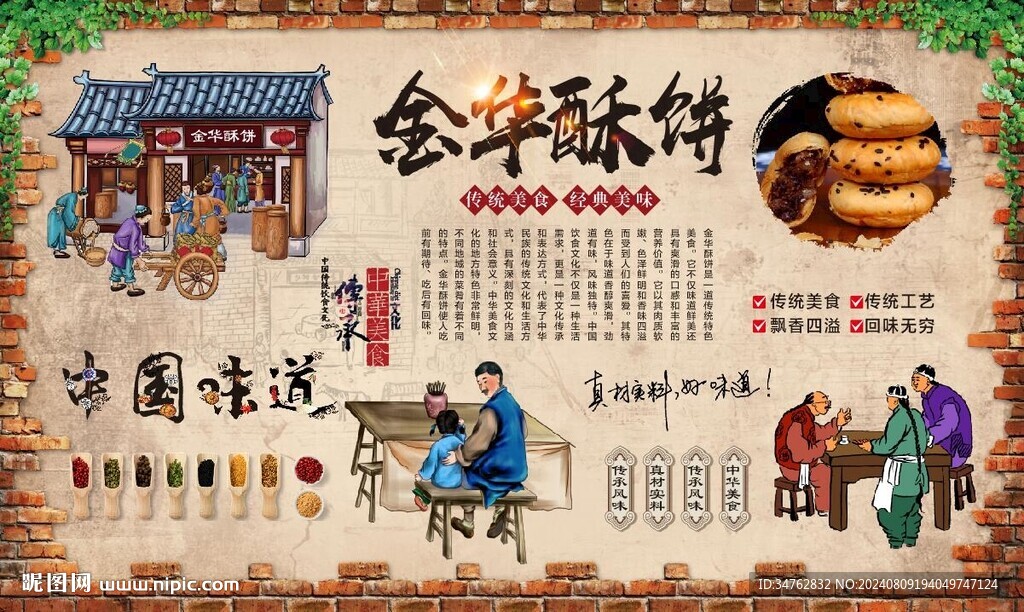 金华酥饼
金华酥饼
传统美食 经典美味
金华酥饼是一道传统特色
美食。它不仅味道鲜美还
具有爽滑的口感和丰富的
营养价值。它以其肉质软
嫩、色泽鲜明和香味四溢
而受到人们的喜爱。其特
色在于味道香醇爽滑，劲
道有味，风味独特。中国
饮食文化不仅是一种生活
需求，更是一种文化传承
和表达方式，代表了中华
民族的传统文化和生活方
式，具有深刻的文化内涵
和社会意义。中华美食文
化的地方特色非常鲜明，
不同地域的菜肴有着不同
的特点。金华酥饼使人吃
前有期待、吃后有回味。
传统美食 传统工艺
飘香四溢 回味无穷
中華美食
文化
傳承
中国传统饮食文化
中国味道
真材实料,好味道!
传承风味
真材实料
传承风味
中华美食
昵图网 www.nipic.com
ID:34762832 NO:20240809194049747124